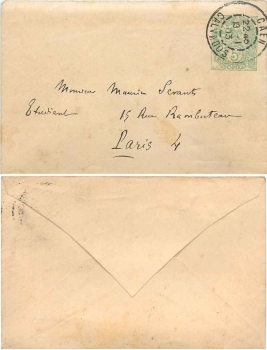 CAEN
CALVADOS
Monsieur Maurice
Etudiant 15 Rue Rambuteau
Paris 4